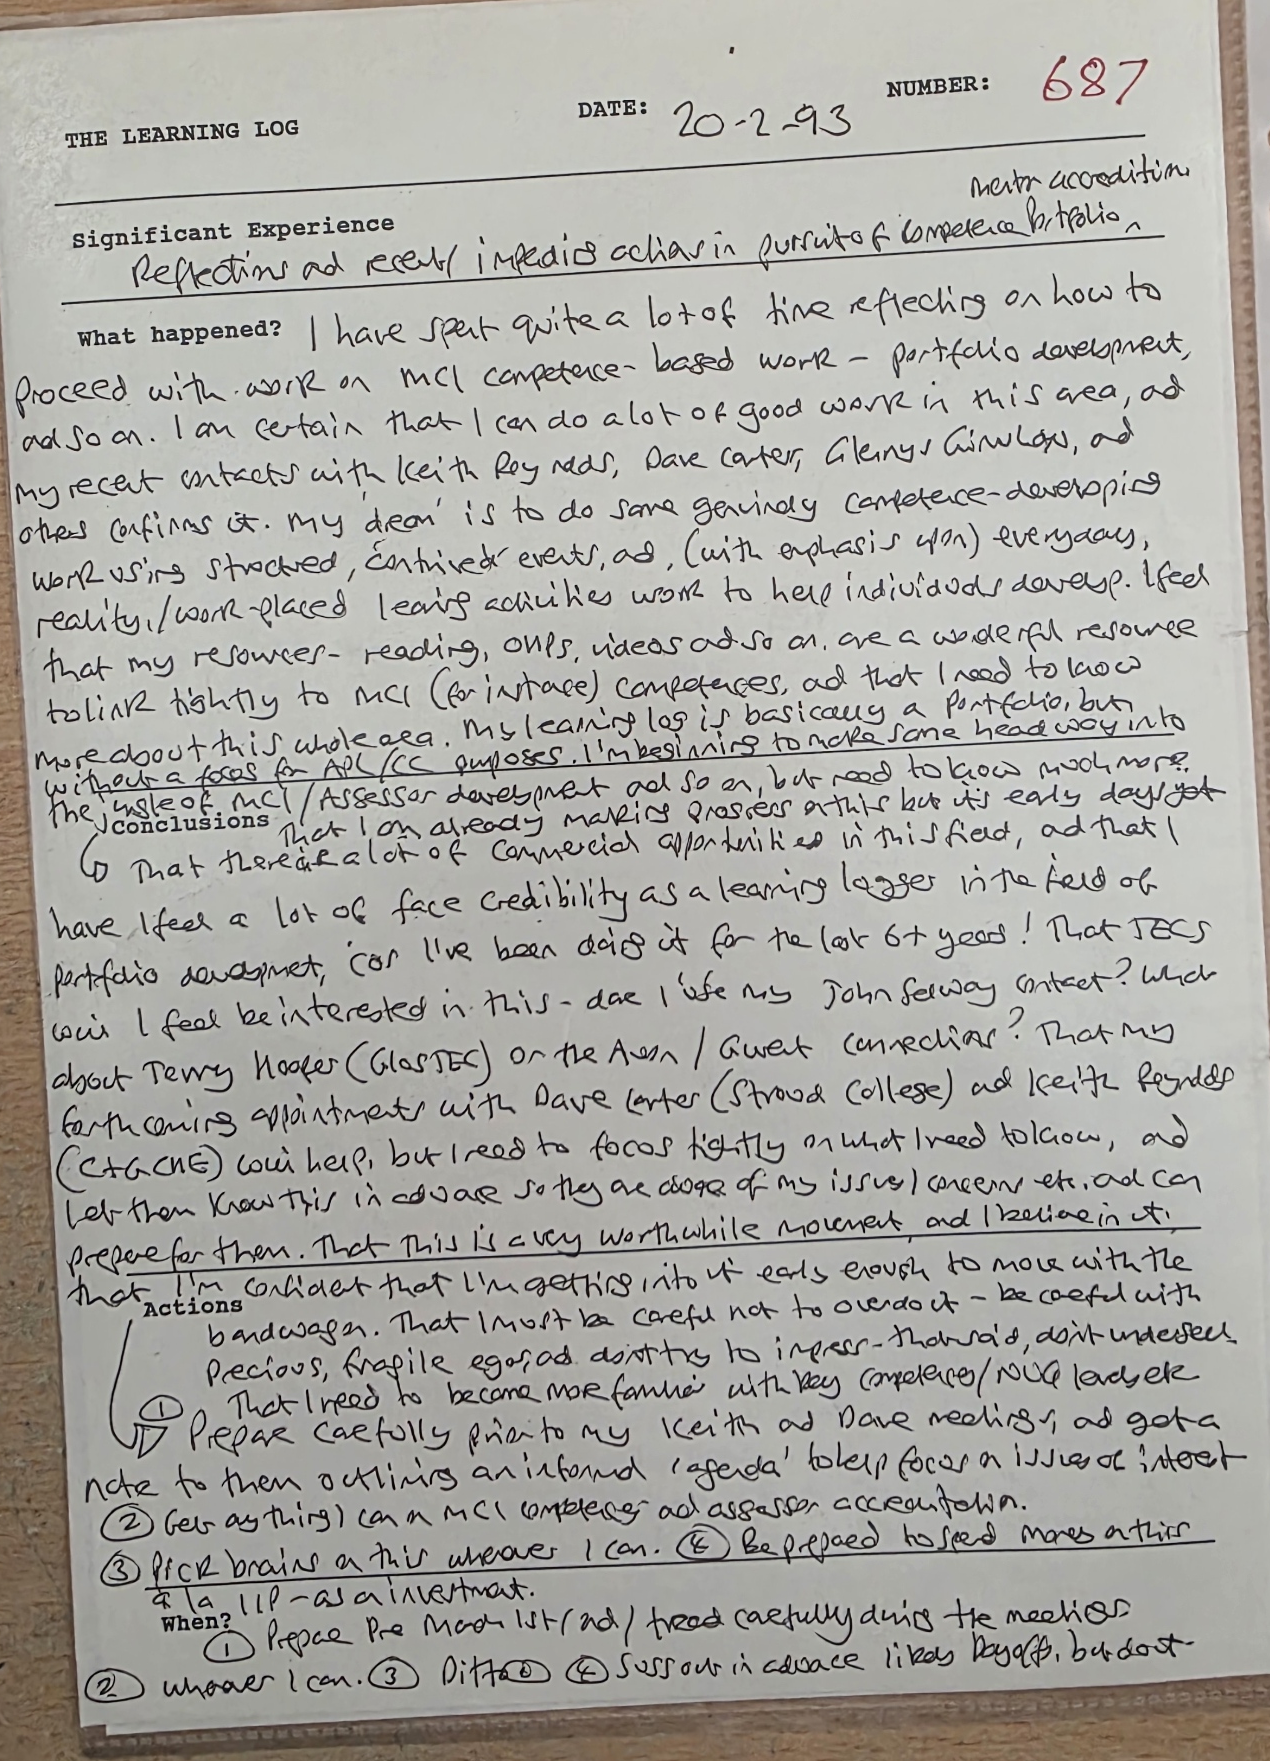 NUMBER: 687
DATE: 20-2-93
THE LEARNING LOG
mentor accreditation
Significant Experience
Reflections and recent / impending actions in pursuit of competence Portfolio
What happened? I have spent quite a lot of time reflecting on how to
proceed with work on MCI competence-based work - portfolio development,
and so on. I am certain that I can do a lot of good work in this area, and
my recent contacts with Keith Reynolds, Dave Carter, Glenys and
others confirms it. My 'dream' is to do some genuinely competence-developing
work using structured, 'contrived' events, and, (with emphasis upon) everyday,
reality,/work-placed learning activities work to help individuals develop. I feel
that my resources - reading, OHPs, videos and so on, are a wonderful resource
to link tightly to MCI (for instance) competences, and that I need to know
more about this whole area. My learning log is basically a portfolio, but
without a focus for APL/CC purposes. I'm beginning to make some headway into
the jungle of MCI/Assessor development and so on, but need to know much more.
Conclusions That I am already making progress on this but it's early days yet
That there is a lot of commercial opportunities in this field, and that I
have I feel a lot of face credibility as a learning logger in the field of
portfolio development, 'cos I've been doing it for the last 6+ years! That TECS
will I feel be interested in this - dare I use my John Selway contact? What
about Terry Hooper (GlosTEC) or the Avon / Gwent connections? That my
forthcoming appointments with Dave Carter (Stroud College) and Keith Reynolds
(C+GCHE) will help, but I need to focus tightly on what I need to know, and
let them know this in advance so they are aware of my issues/concerns etc. and can
prepare for them. That this is a very worthwhile movement, and I believe in it,
that I'm confident that I'm getting into it early enough to move with the
Actions
bandwagon. That I must be careful not to overdo it - be careful with
precious, fragile egos, and don't try to impress - that said, don't undersell.
That I need to become more familiar with key competences/NVQ levels etc
① Prepare carefully prior to my Keith and Dave meetings, and get a
note to them outlining an informed 'agenda' to help focus on issues of interest
② Get anything I can on MCI competences and assessor accreditation.
③ Pick brains on this wherever I can. ④ Be prepared to spend money on this
à la IIP - as an investment.
When?
① Prepare pre March 1st (and) tread carefully during the meetings
② Whenever I can. ③ Ditto ② ④ Suss out in advance likely payoffs, but don't